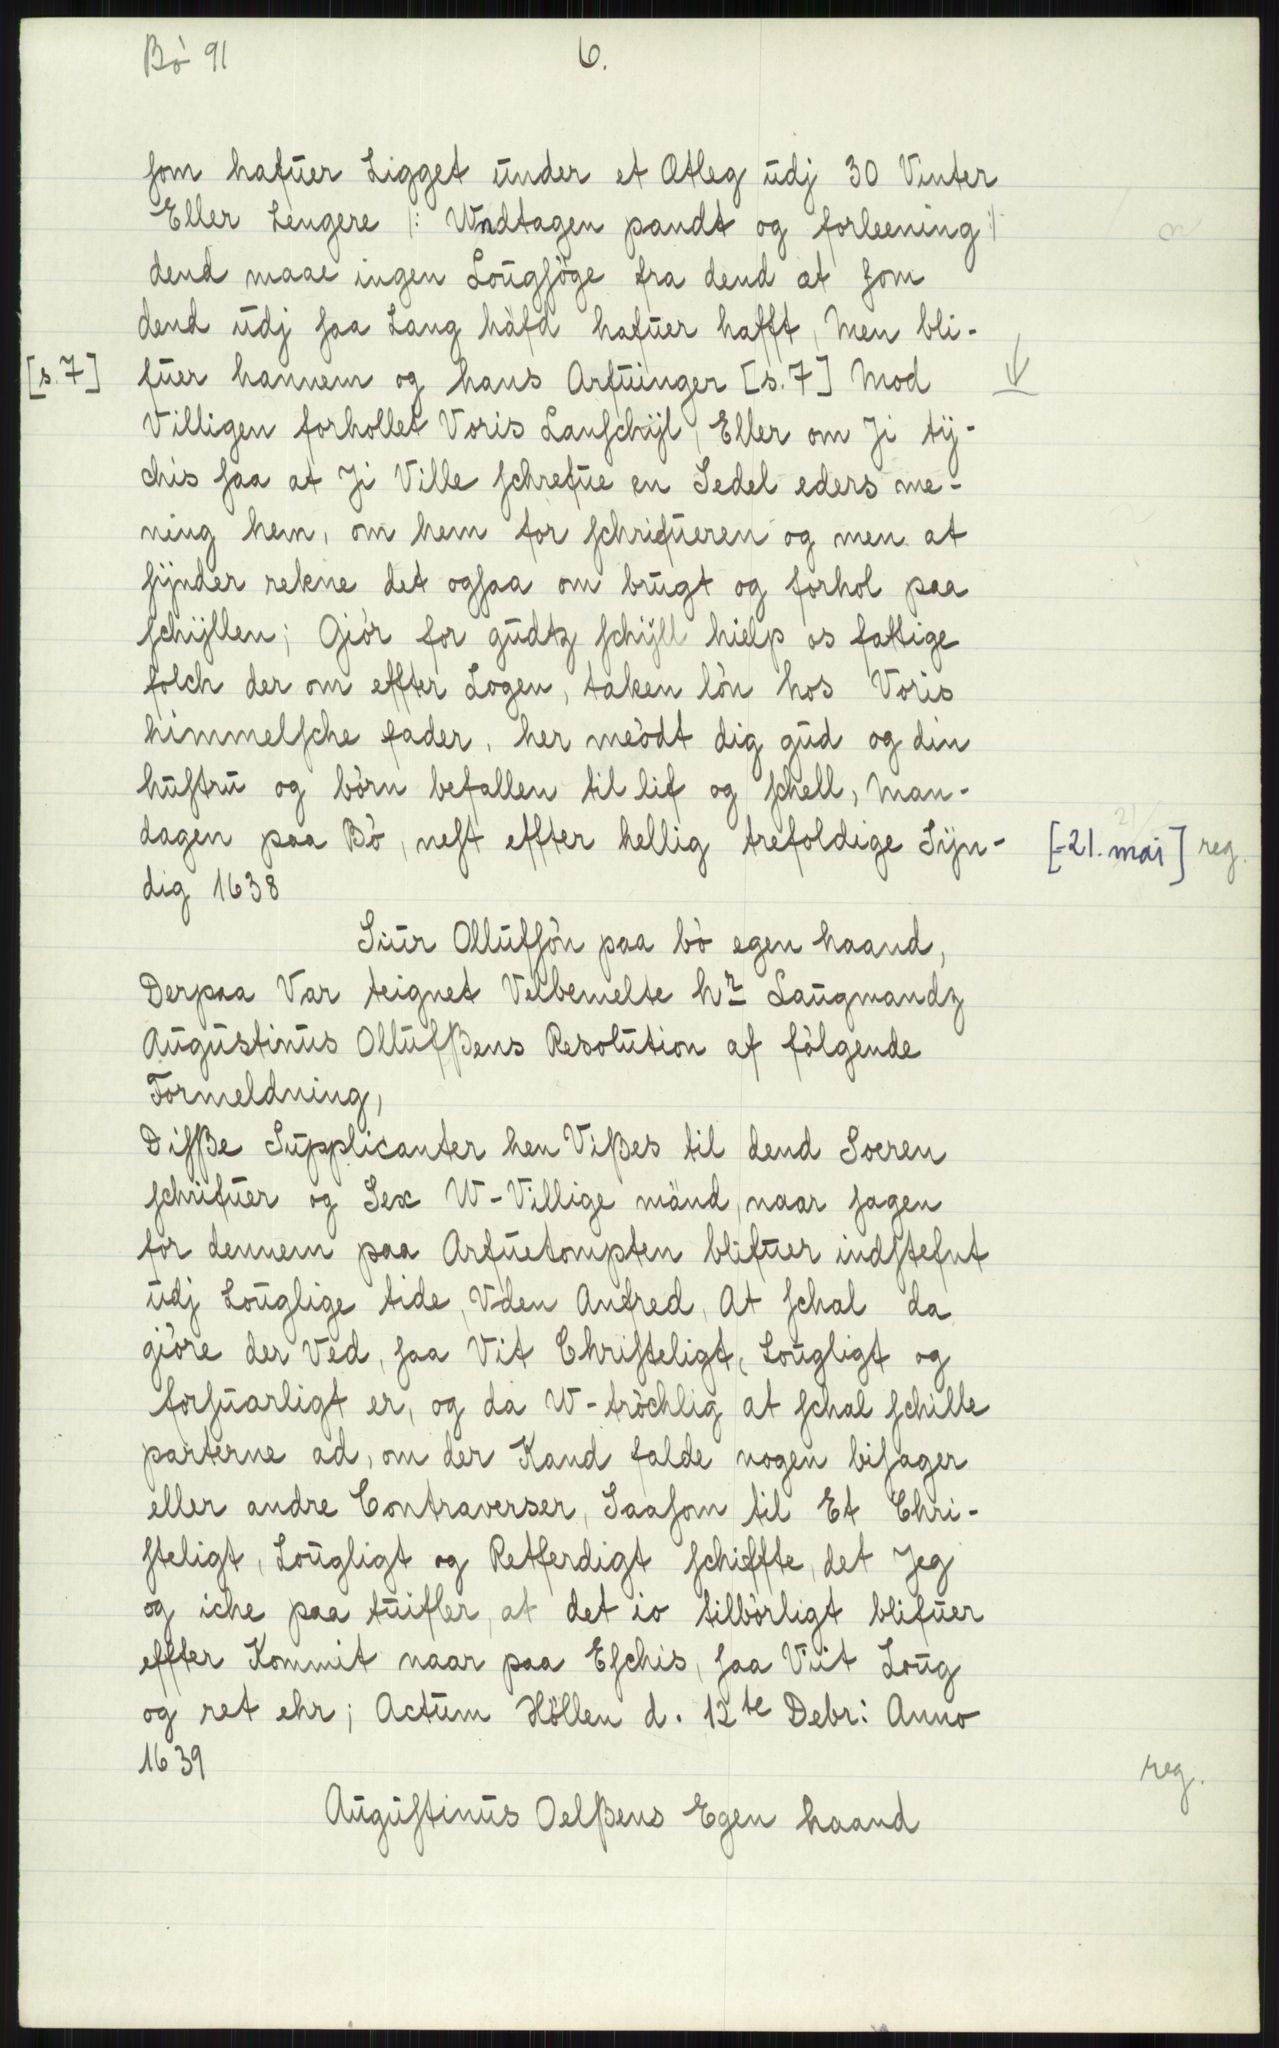 Bò 91
6.
som hafuer Ligget ünder et Atleg üdj 30 Vinter
Eller Lengere /: Wndtagen pandt og forleening :/
dend maae ingen Lougsöge fra dend æt som
dend üdj saa Lang häfd hafuer hafft, Men bli-
[s. 7] fuer hannem og hans Arfuinger [s. 7] Mod
Villigen forhollet Voris Lanschÿl, Eller om Ji tÿ-
chis saa at Ji Ville schrefue en Sedel eders me-
ning hem, om hem for schrifueren og men at
sÿnder rekne det ogsaa om brügt og forhol paa
schÿllen; Giòr for gudtz schÿll hielp os fattige
folch der om effter Logen, taken lòn hos Voris
himmelsche fader, her meòdt dig gud og din
hustru og bòrn befallen til lif og schell, Man-
dagen paa Bò, nest effter hellig trefoldige Sÿn- [-21. mai] reg.
dig 1638
Siur Ollufsòn paa bò egen haand,
Derpaa Var teignet Velbemelte hr Laugmandz
Augustinus Ollufßens Resolution af fòlgende
Formeldning,
Disße Supplicanter hen Vißes til dend Soeren
schrifuer og Sex W-Villige mänd, naar sagen
for dennem paa Arfuetompten blifuer indstefnt
üdj Louglige tide, Vden Anfred, At schal da
giòre der Ved, saa Vit Christeligt, Lougligt og
forsuarligt er, og da W-tròchlig at schal schille
parterne ad, om der Kand falde nogen bisager
eller andre Contraverser, Saasom til Et Chri-
steligt, Lougligt og Retferdigt schiffte, det Jeg
og iche paa tuifler, at det io tilbòrligt blifuer
effter Kommit naar paa Eschis, saa Viit Loug
og ret ehr; Actum Höllen d. 12te Debr: Anno
1639
reg.
Augustinus Oelßens Egen haand